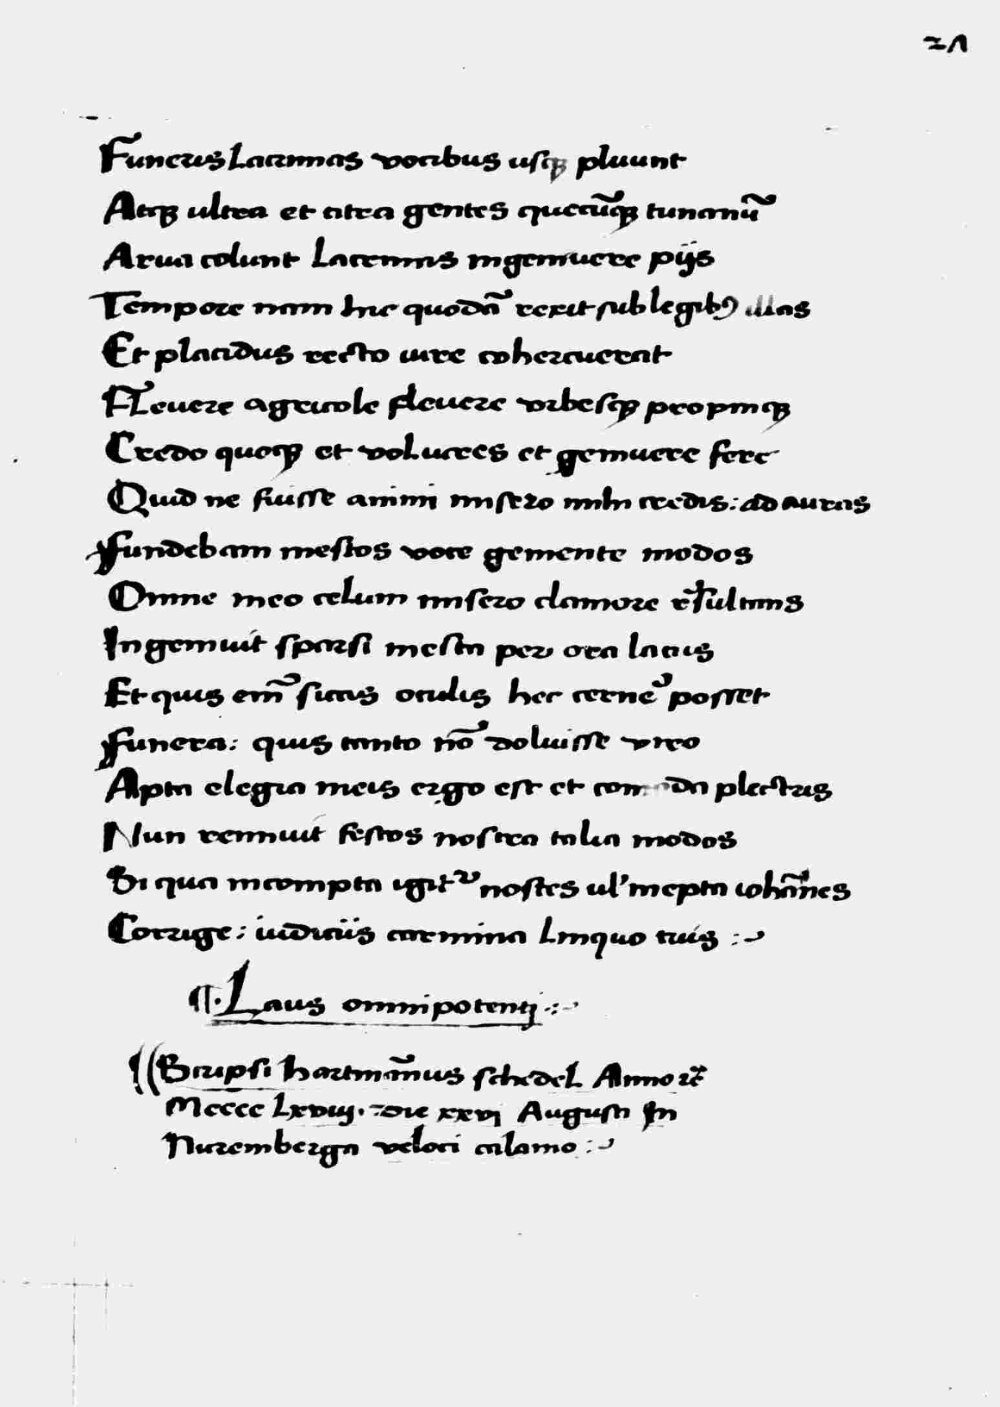 21
Funeris Lacrimas vocibus usqꝫ pluunt
Atqꝫ ultra et citra gentes quecūqꝫ
Arua colunt Lacrimas ingemuere pijs
Tempore nam hic quodā rexit sub legibꝯ illas
Et placidus recto iure cohercuerat
FLeuere agricole fleuere vrbesqꝫ propinqꝫ
Credo quoqꝫ et voLucres et gemuere fere
Quid ne fuisse animi misero mihi credis: ad auras
Fundebam mestos voce gemente modos
Omne meo celum misero clamore resultans
Ingemuit sparsi mesta per ora lacus
Et quis em̄ siccis oculis hec cerneꝰ posset
Funera: quis tanto nō doluisse viro
Apta elegia meis ergo est et comoda plectris
Nun rennuit festos nostra talia modos
Si qua incompta igit᷑ nostes ul' inepta iohānes
Corrige: iudicijs carmina Linquo tuis :~
¶. Laus omnipotentj .:~
Scripsi hartmānus schedeL Anno
Mcccc Lxviij. die xxvj Augusti In
Nuremberga veloci calamo :~